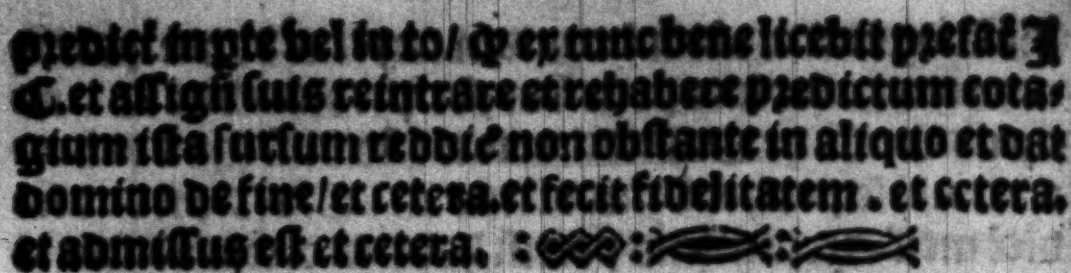 predict in pte vel in to/ Q ex tunc bene licebit prefat J
C. et assign suis reintrare et rehabere predictum cota⸗
gium ista sursum reddic non obstante in aliquo et dat
domino de fine/et cetera.et fecit fidelitatem . et cetera.
et admissus est et cetera.